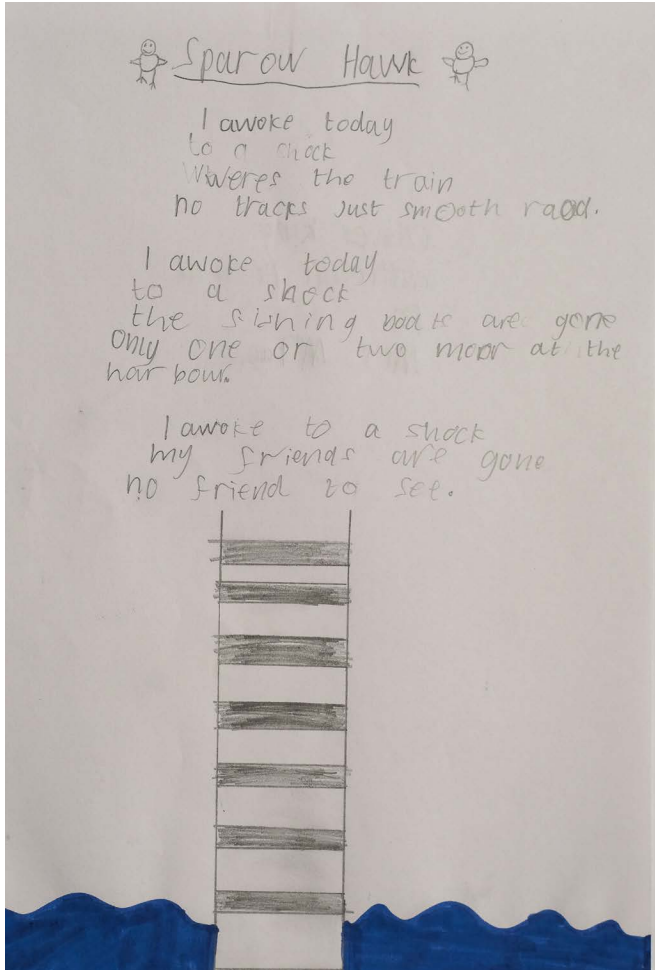 Sparow Hawk
I awoke today
to a shock
Weres the train
no tracks Just smooth raod.
I awoke today
to a shock
the fishing boats are gone
only one or two moor at the
harbour.
I awoke to a shock
my friends are gone
no friend to see.